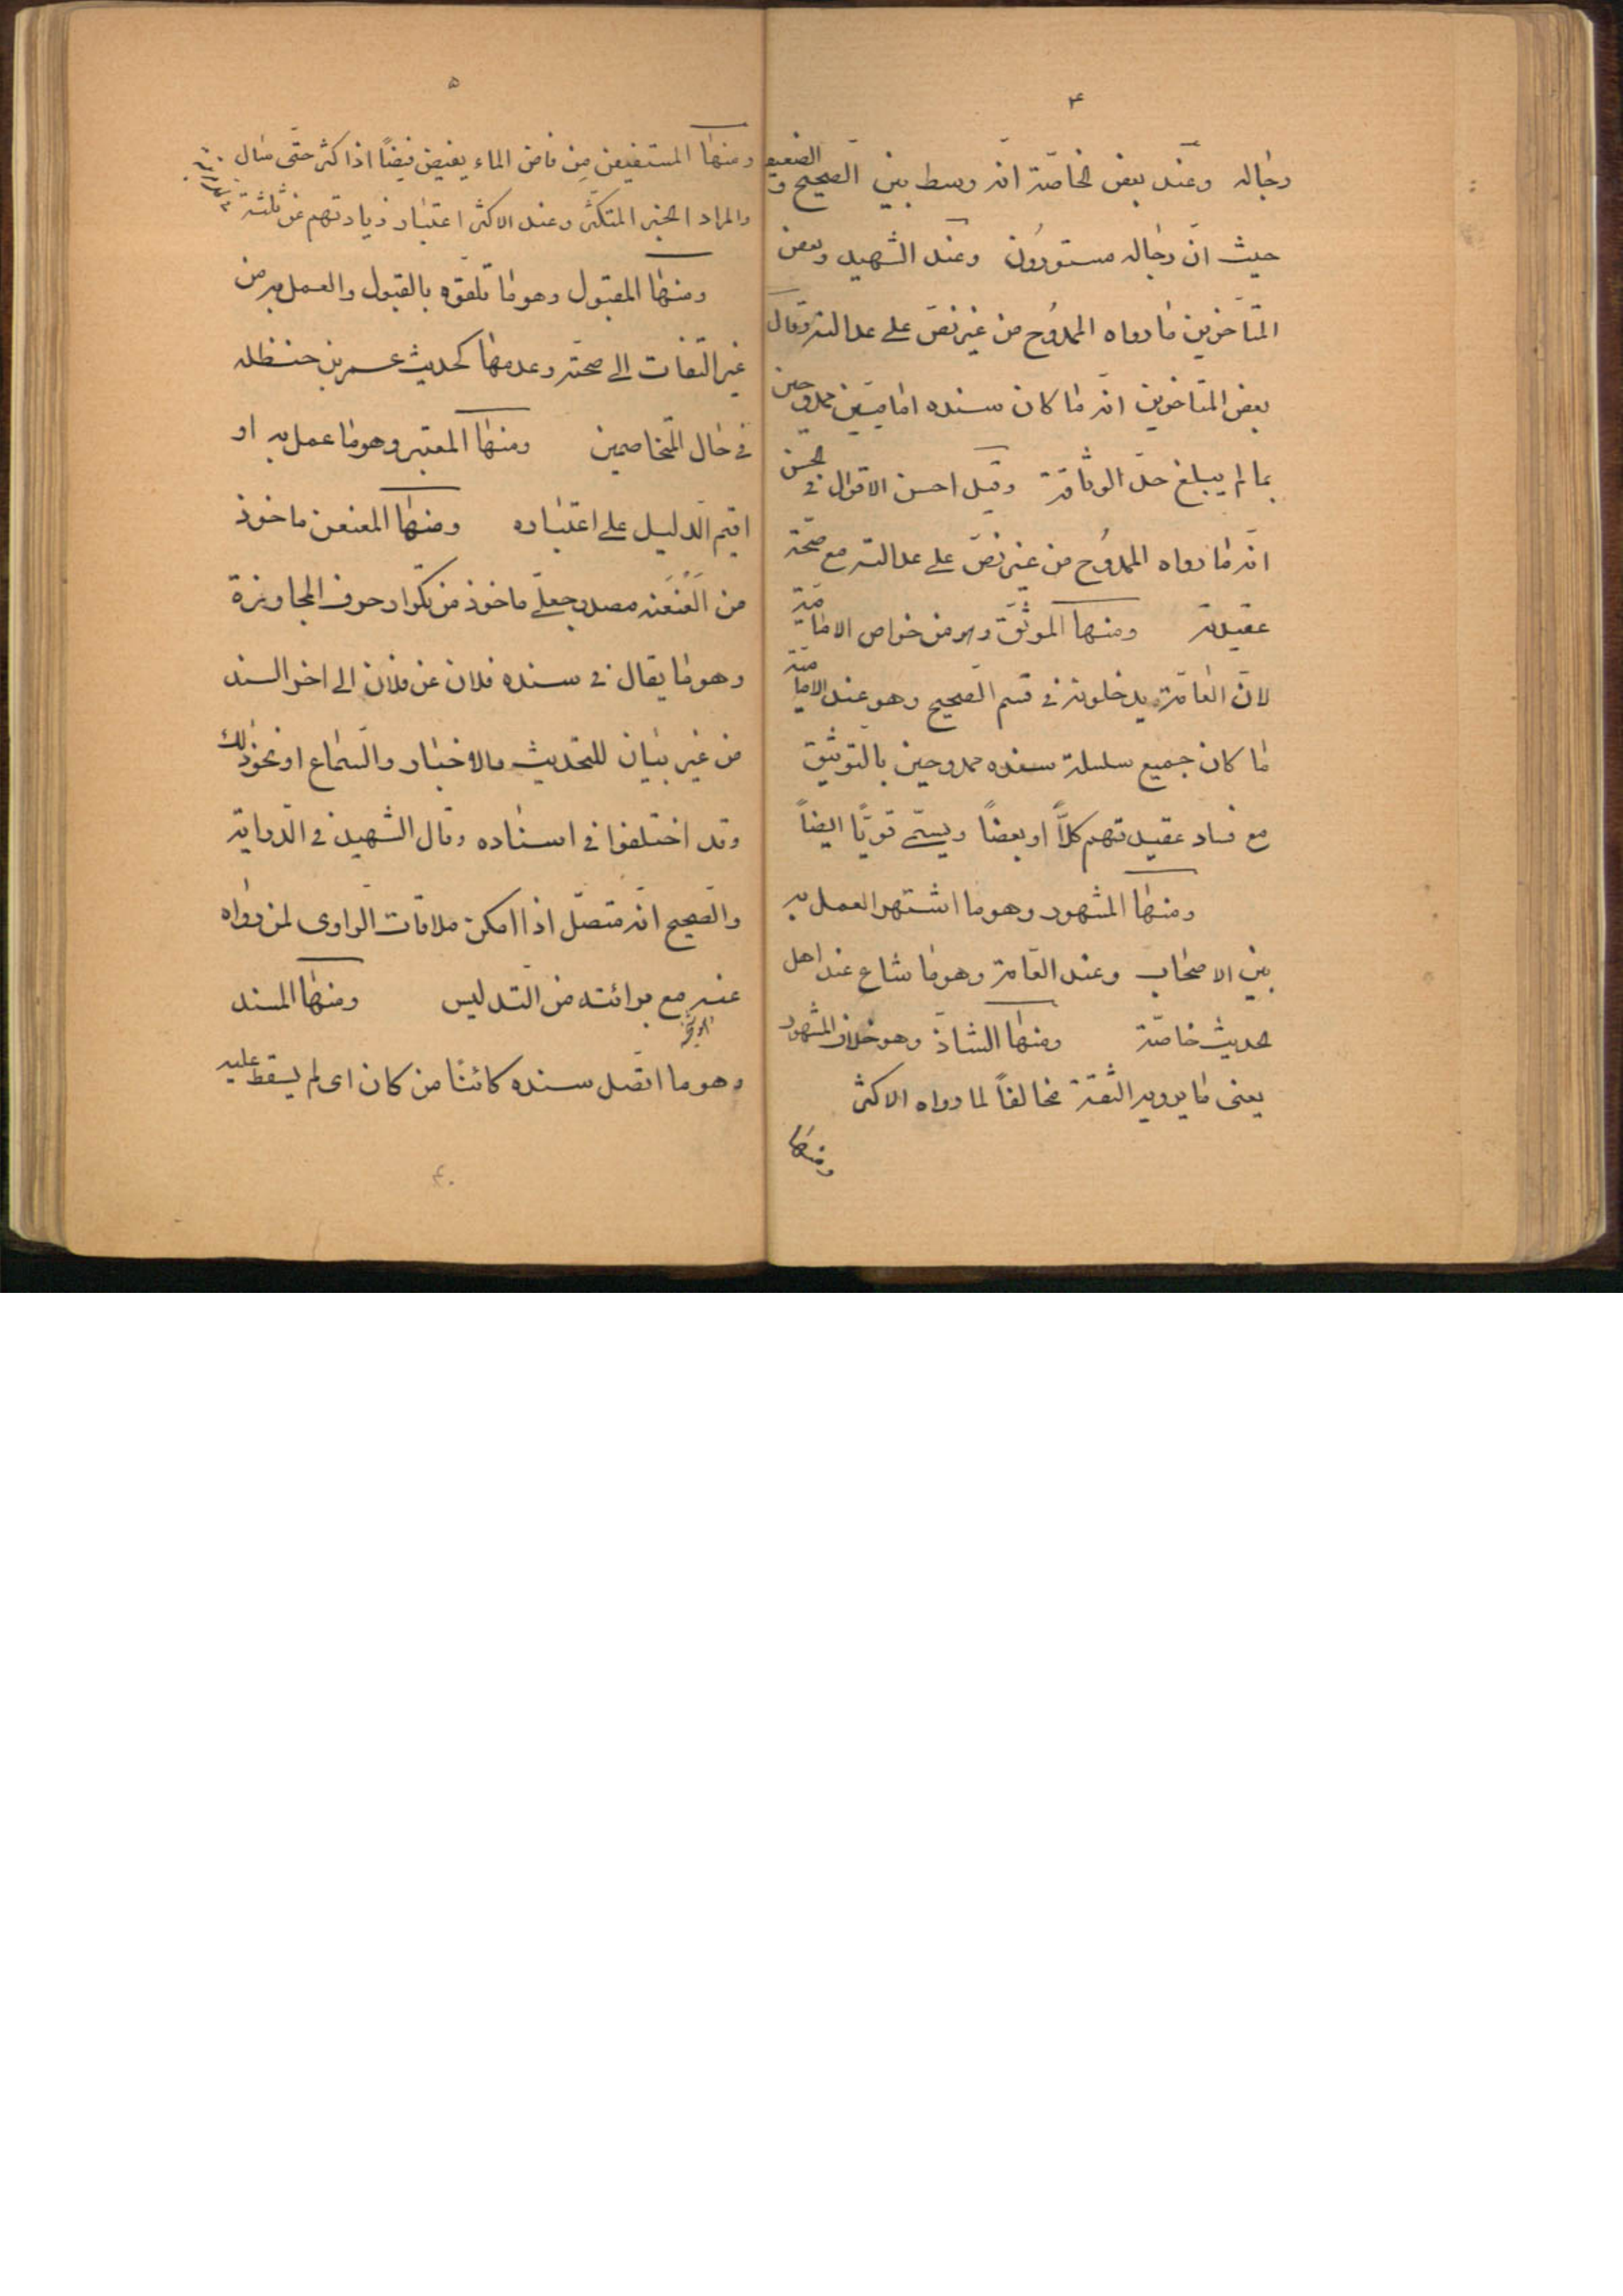 ۴
رجاله وعند بعض الخاصّة انّه وسط بين الصّحيح و الضعيف
حيث انّ رجاله مستورون وعند الشهيد وبعض
المتأخرين ما رواه الممدوح من غير نصّ على عدالته وقال
بعض المتاخرين انّه ما كان سنده اماميّين ممدوحين
بما لم يبلغ حدّ الوثاقة وقيل احسن الاقوال فى الحسن
انّه ما رواه الممدوح من غير نصّ على عدالته مع صحّة
عقيدته ومنها الموثّق وهو من خواص الاماميّة
لانّ العامّة يدخلونه فى قسم الصّحيح وهو عند الاماميّة
ما كان جميع سلسلة سنده ممدوحين بالتوثيق
مع فساد عقيدتهم كلاًّ او بعضاً ويسمّى قويّاً ايضاً
ومنها المشهور وهو ما اشتهر العمل به
بين الاصحاب وعند العامّة وهو ما شاع عند اهل
الحديث خاصّة ومنها الشاذّ وهو خلاف المشهور
يعنى ما يرويه الثقة مخالفاً لما رواه الاكثر
ومنها
۵
ومنها المستفيض من فاض الماء يفيض فيضًا اذا كثر حتّى سال
والمراد الخبر المتكثّر وعند الاكثر اعتبار زيادتهم عن ثلثة
ومنها المقبول وهو ما تلقّوه بالقبول والعمل به من
غير التفات الى صحّته وعدمها كحديث عمر بن حنظله
فى حال المتخاصمين ومنها المعتبر وهو ما عمل به او
اقيم الدّليل على اعتباره ومنها المعنعن ماخوذ
من العَنْعَنه مصدر جعلىّ ماخوذ من تكرار حرف المجاوزة
وهو ما يقال فى سنده فلان عن فلان الى اخر السند
من غير بيان للتحديث والاخبار والسّماع او نحو ذلك
وقد اختلفوا فى اسناده وقال الشهيد فى الدّراية
والصّحيح انّه متصّل اذا امكن ملاقات الرّاوى لمن رواه
عنه مع برائته من التّدليس ومنها المسند
وهو ما اتّصل سنده كائنًا من كان اى لم يسقط عليه